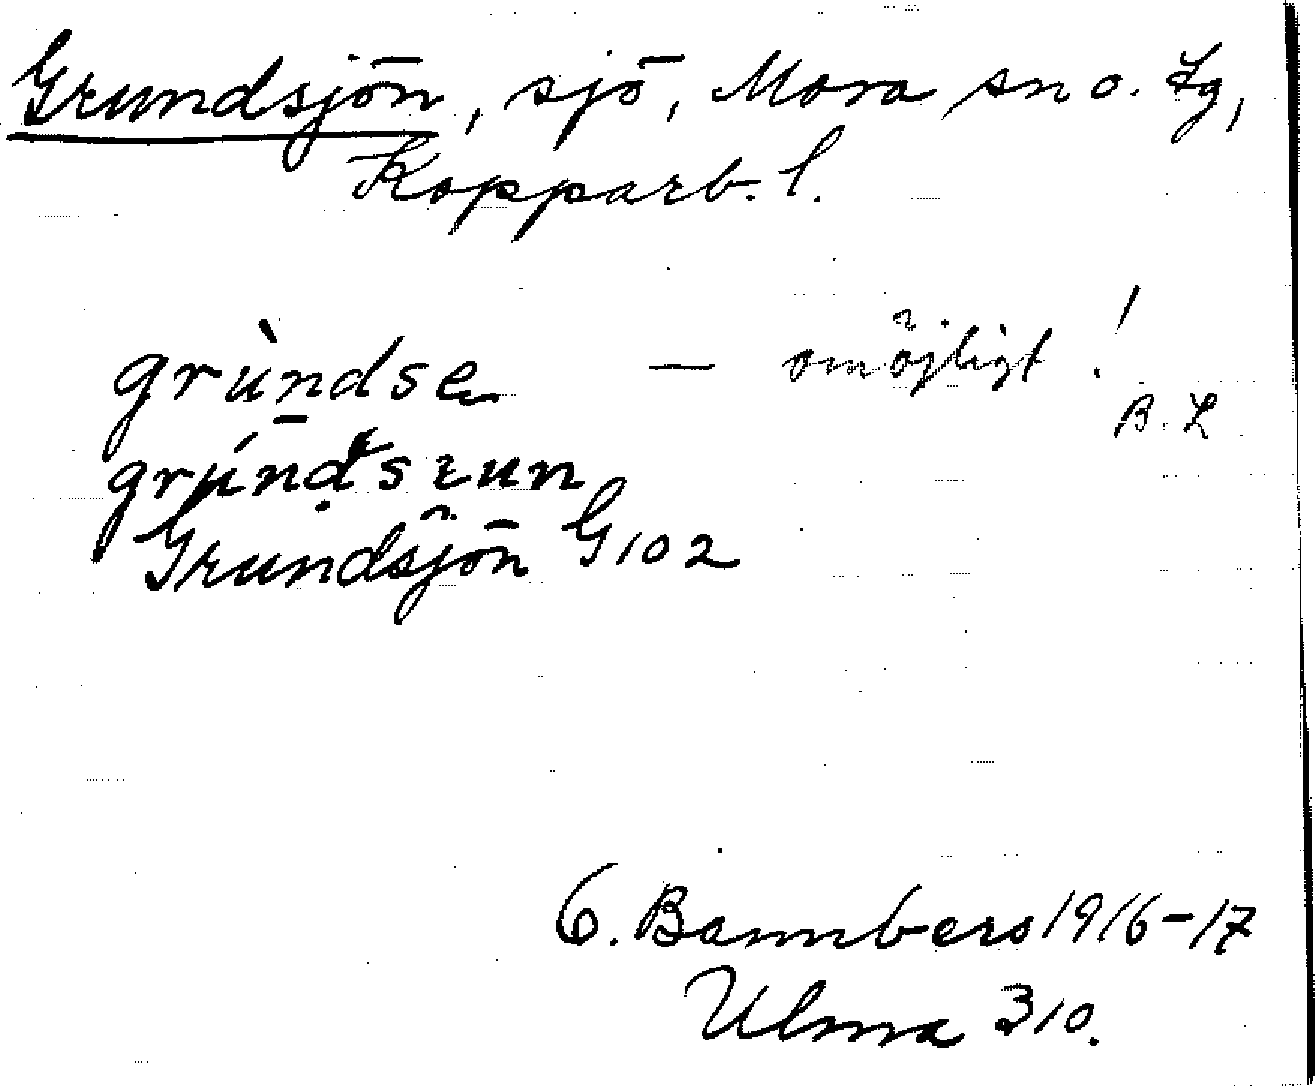 Grundsjön, sjö, Mora sn o. tg,
Kopparb. l.
grùndse — omöjligt!
B. L
grúndsɛun
Grundsjön G 102
O. Bannbers 1916-17
Ulma 310.